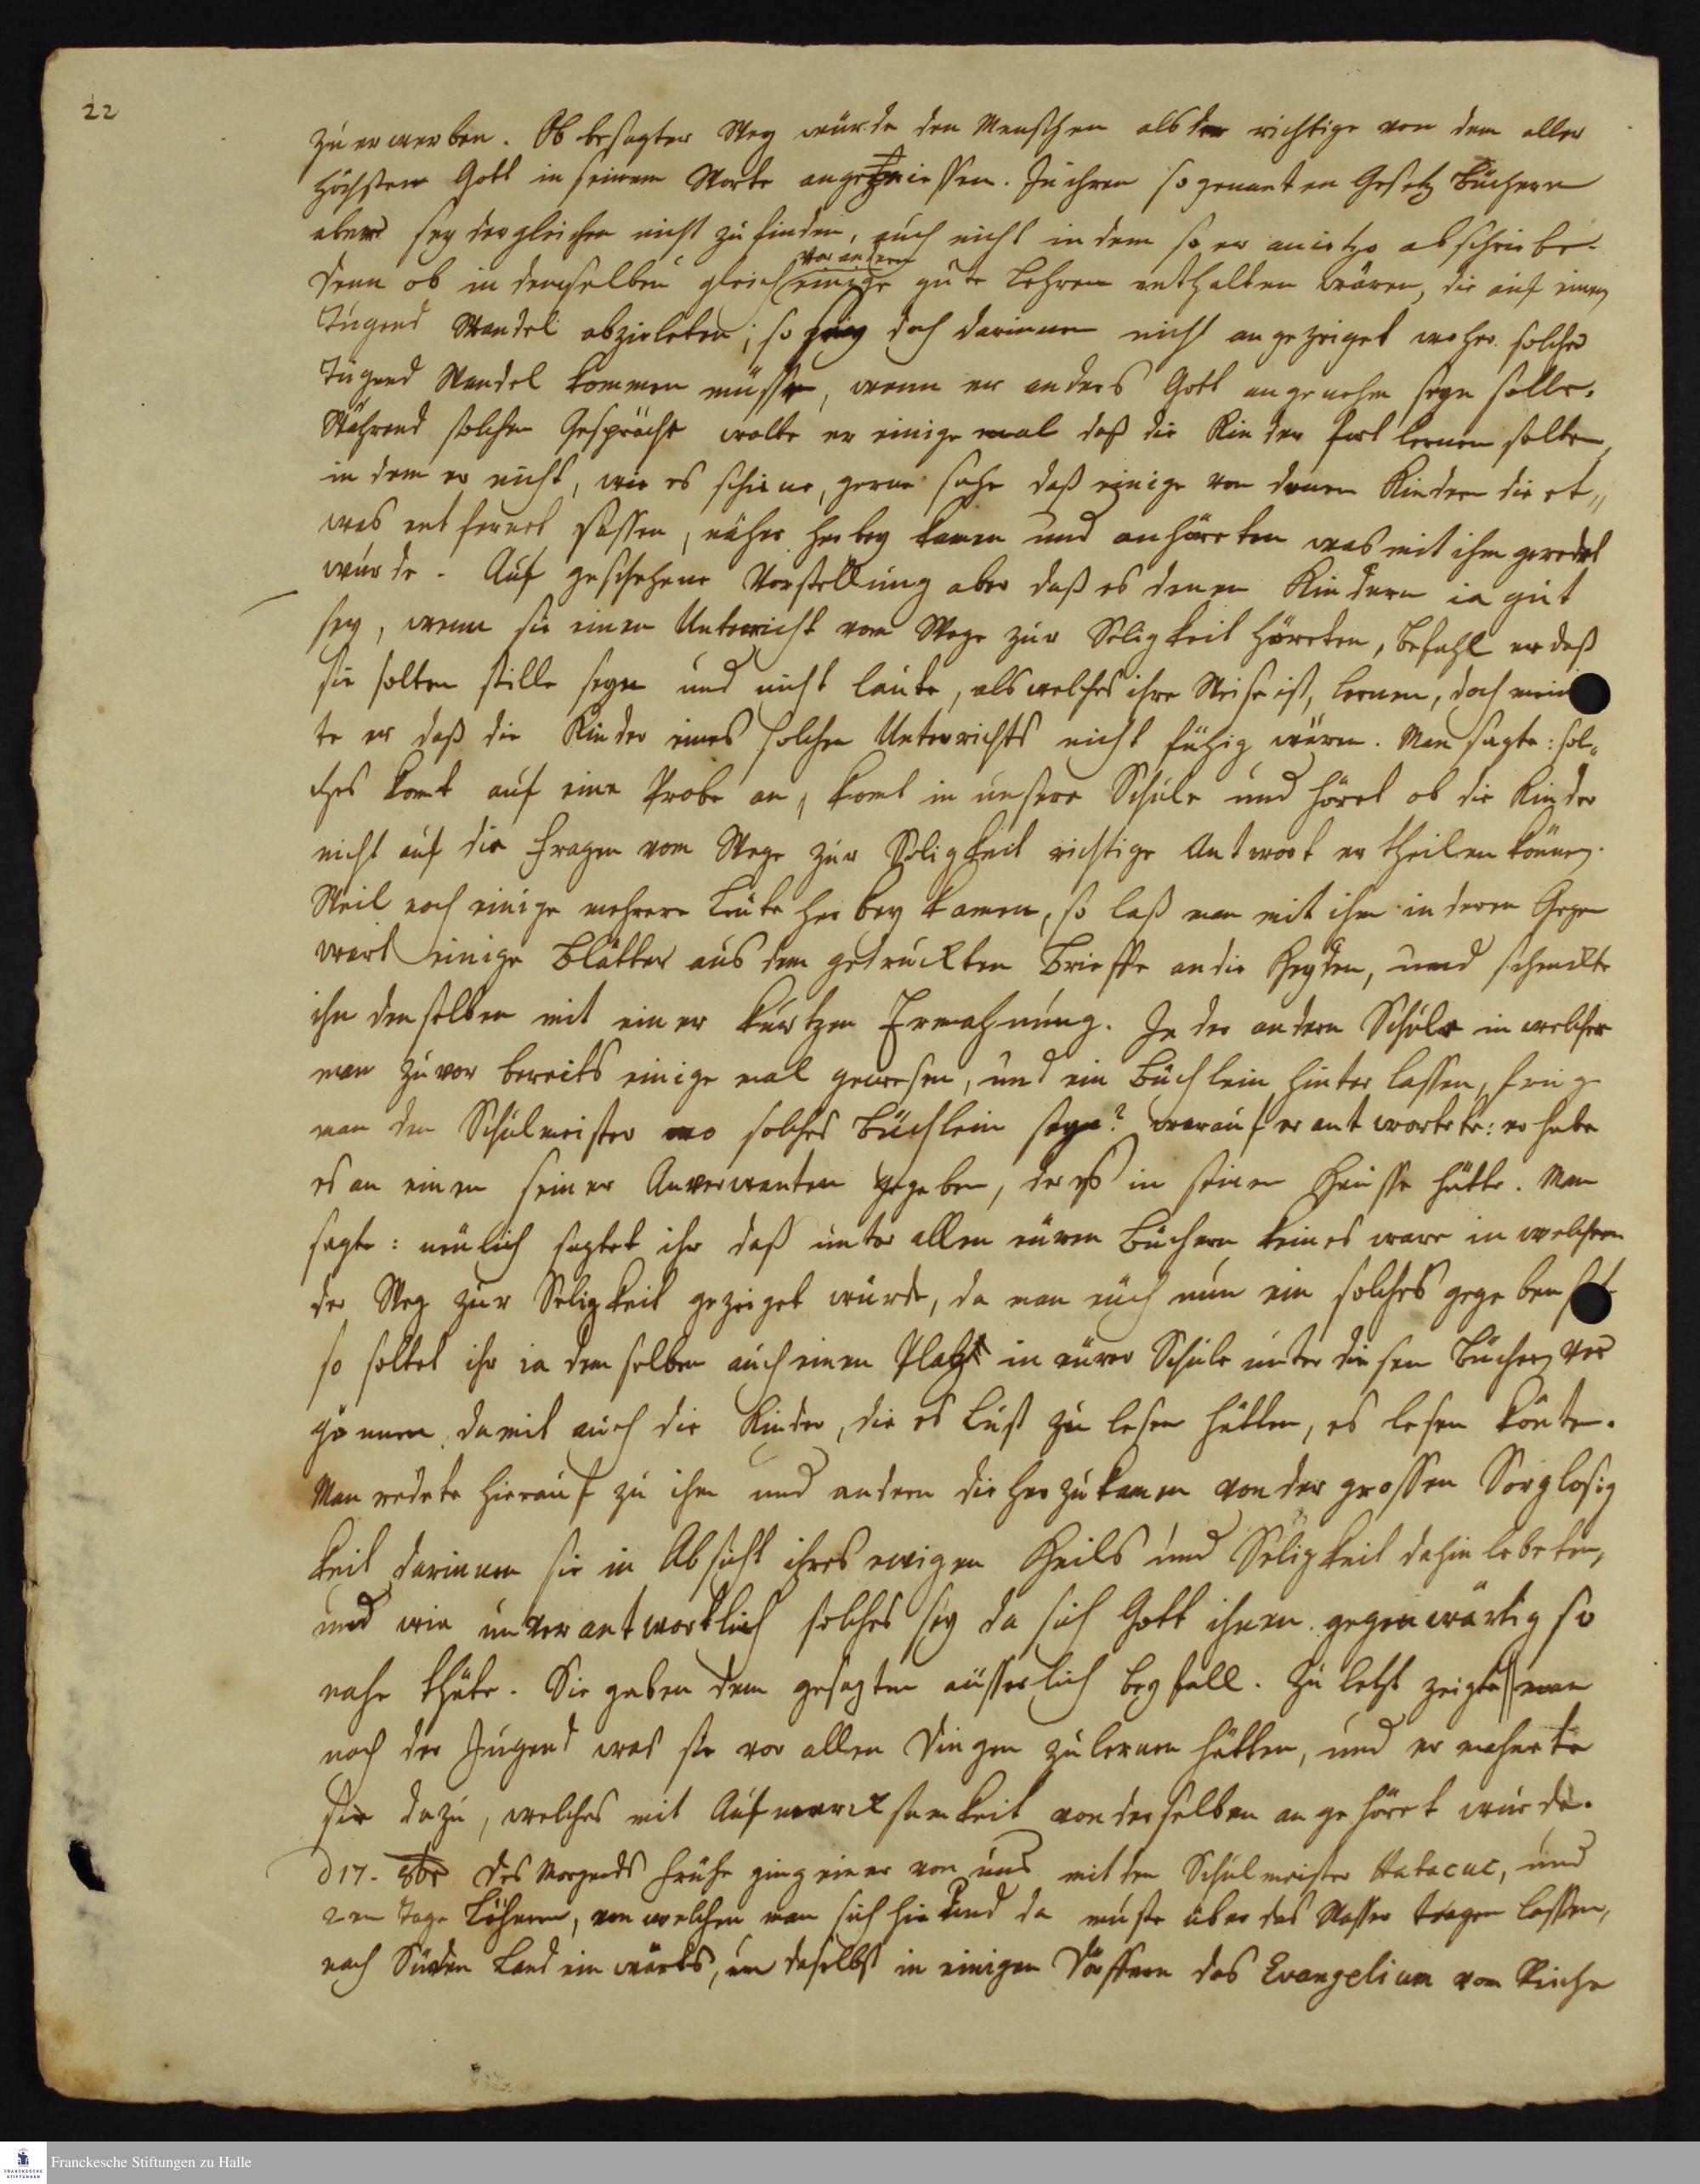 22
zu erwerben. Obbesagter Weg würde den Menschen als der richtige von dem aller
höchsten Gott in seinem Worte angewiessen. In ihren so genanten Gesetz Büchern
aber sey dergleichen nicht zu finden, auch nicht in dem so er anietzo abschriebe.
vor andern
Denn ob in demselben gleich einige gute Lehren enthalten wären, die auf einen
Tugend Wandel abzieleten; so sey doch darinnen nicht angezeiget woher solcher
Tugend Wandel kommen müsste, wenn er anders Gott angenehm seyn solle.
Während solchen Gesprächs wolte er einige mal daß die Kinder fort lernen solten,
in dem er nicht, wie es schiene, gerne sahe daß einige von denen Kindern die et„
was entfernet sassen, näher herbey kamen und anhöreten was mit ihm geredet
wurde. Auf geschehene Vorstellung aber daß es denen Kindern ia gut
sey, wenn sie einen Unterricht vom Wege zur Seligkeit höreten, befahl er daß
sie solten stille seyn und nicht laute, als welches ihre Weise ist, lernen, doch mein
te er daß die Kinder eines solchen Unterrichts nicht fähig wären. Man sagte: sol„
ches komt auf eine Probe an, komt in unsere Schule und höret ob die Kinder
nicht auf die Fragen vom Wege zur Seligkeit richtige Antwort ertheilen können.
Weil noch einige mehrere Leute herbey kamen, so laß man mit ihm in deren Gegen
wart einige Blätter aus dem gedruckten Brieffe an die Heyden, und schenckte
ihn denselben mit einer kurtzen Ermahnung. In der andern Schule in welcher
man zuvor bereits einige mal gewesen, und ein Büchlein hinterlassen, frug
man den Schulmeister wo solches Büchlein seye? worauf er antwortete: er habe
es an einen seiner Anverwanten gegeben, der es in seinem Hausse hätte. Man
sagte: neulich sagtet ihr daß unter allen euren Büchern keines ware in welchem
der Weg zur Seligkeit gezeiget würde, da man euch nun ein solches gegeben hat
so soltet ihr ia demselben auch einen Platz in eurer Schule unter diesen Büchern ver
gönnen, damit auch die Kinder, die es Lust zu lesen hätten, es lesen könten.
Man redete hierauf zu ihm und andern die herzu kamen von der grossen Sorglosig
keit darinnen sie in Absicht ihres ewigen Heils und Seligkeit dahin lebeten,
und wie unverantwortlich solches sey da sich Gott ihnen gegenwärtig so
nahe thäte. Sie gaben dem gesagten äusserlich beyfall. Zu letzt zeigte man
noch der Jugend was sie vor allen Dingen zu lernen hätten, und ermahnete
sie dazu, welches mit Aufmercksamkeit von derselben angehöret wurde.
d 17. 8br Des Morgends frühe ging einer von uns mit den Schulmeister Habacuc, und
2 en Tage Löhnern, von welchen man sich hie und da muste über das Wasser tragen lassen,
nach Süden Land einwärts, um daselbst in einigen Dörffern das Evangelium vom Reiche
Franckesche Stiftungen zu Halle